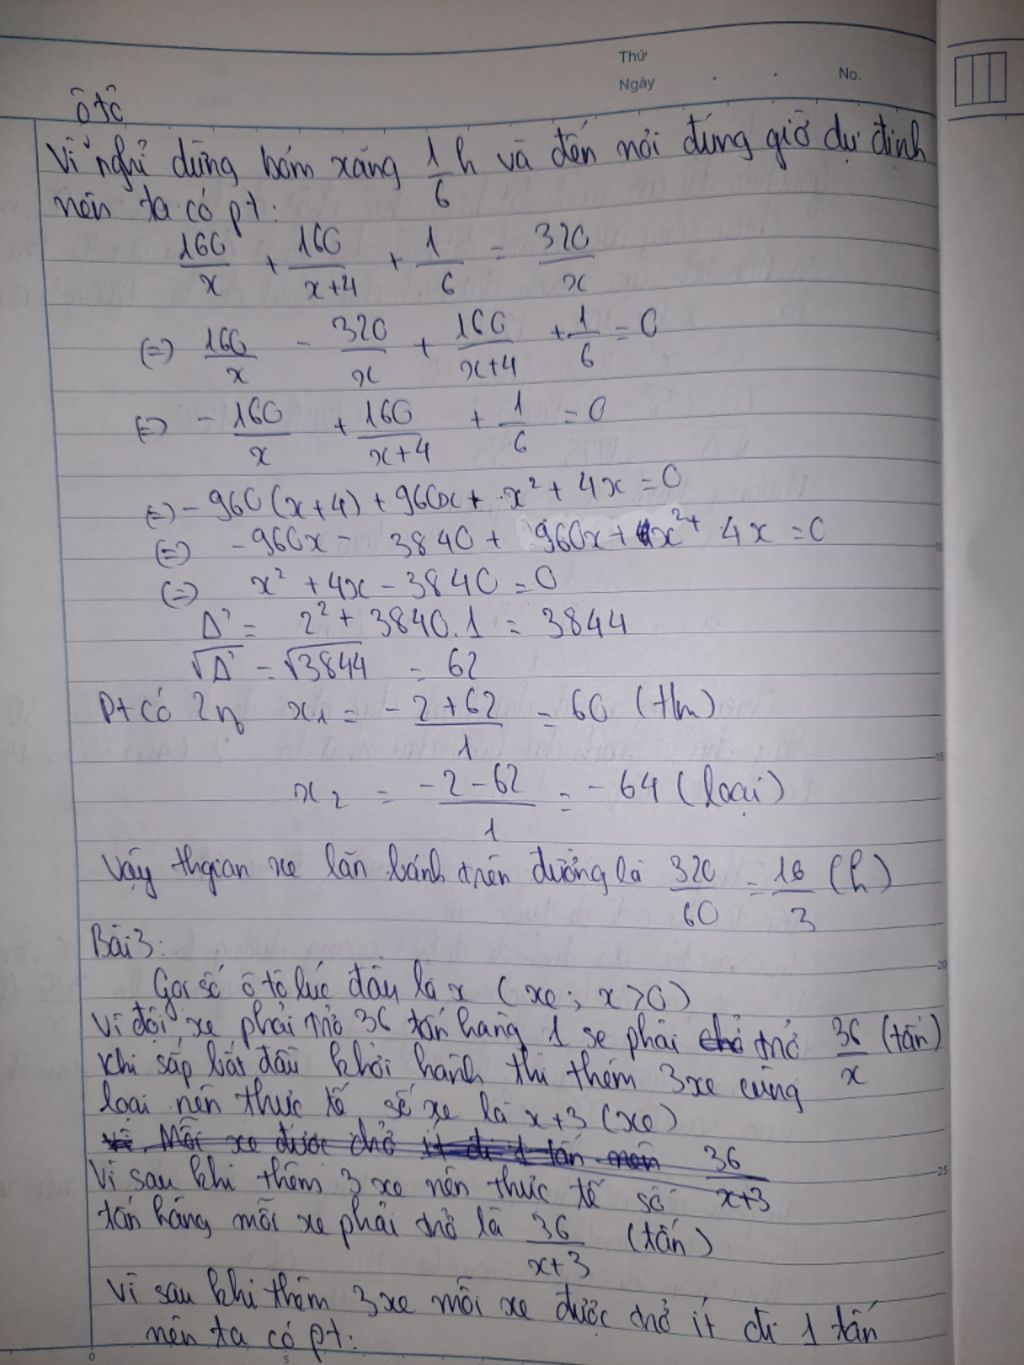 Thứ
Ngày . . No.
ô tô
Vì nghỉ dừng bơm xăng 1/6 h và đến nơi đúng giờ dự định
nên ta có pt:
160/x + 160/(x+4) + 1/6 = 320/x
(=) 160/x - 320/x + 160/(x+4) + 1/6 = 0
(=) - 160/x + 160/(x+4) + 1/6 = 0
(=) - 960(x+4) + 960x + x² + 4x = 0
(=) - 960x - 3840 + 960x + x² + 4x = 0
(=) x² + 4x - 3840 = 0
Δ' = 2² + 3840.1 = 3844
√Δ' = √3844 = 62
Pt có 2 n₀ x₁ = (-2+62)/1 = 60 (t/m)
x₂ = (-2-62)/1 = -64 (loại)
Vậy thgian xe lăn bánh trên đường là 320/60 = 16/3 (h)
Bài 3:
Gọi số ô tô lúc đầu là x (xe; x>0)
Vì đội xe phải trở 36 tấn hàng 1 se phải chở trở 36/x (tấn)
Khi sắp bắt đầu khởi hành thì thêm 3 xe cùng
loại nên thực tế số xe là x+3 (xe)
Vì mỗi xe được chở ít đi 1 tấn nên 36/(x+3)
Vì sau khi thêm 3 xe nên thực tế số
tấn hàng mỗi xe phải trở là 36/(x+3) (tấn)
Vì sau khi thêm 3 xe mỗi xe được trở ít đi 1 tấn
nên ta có pt: